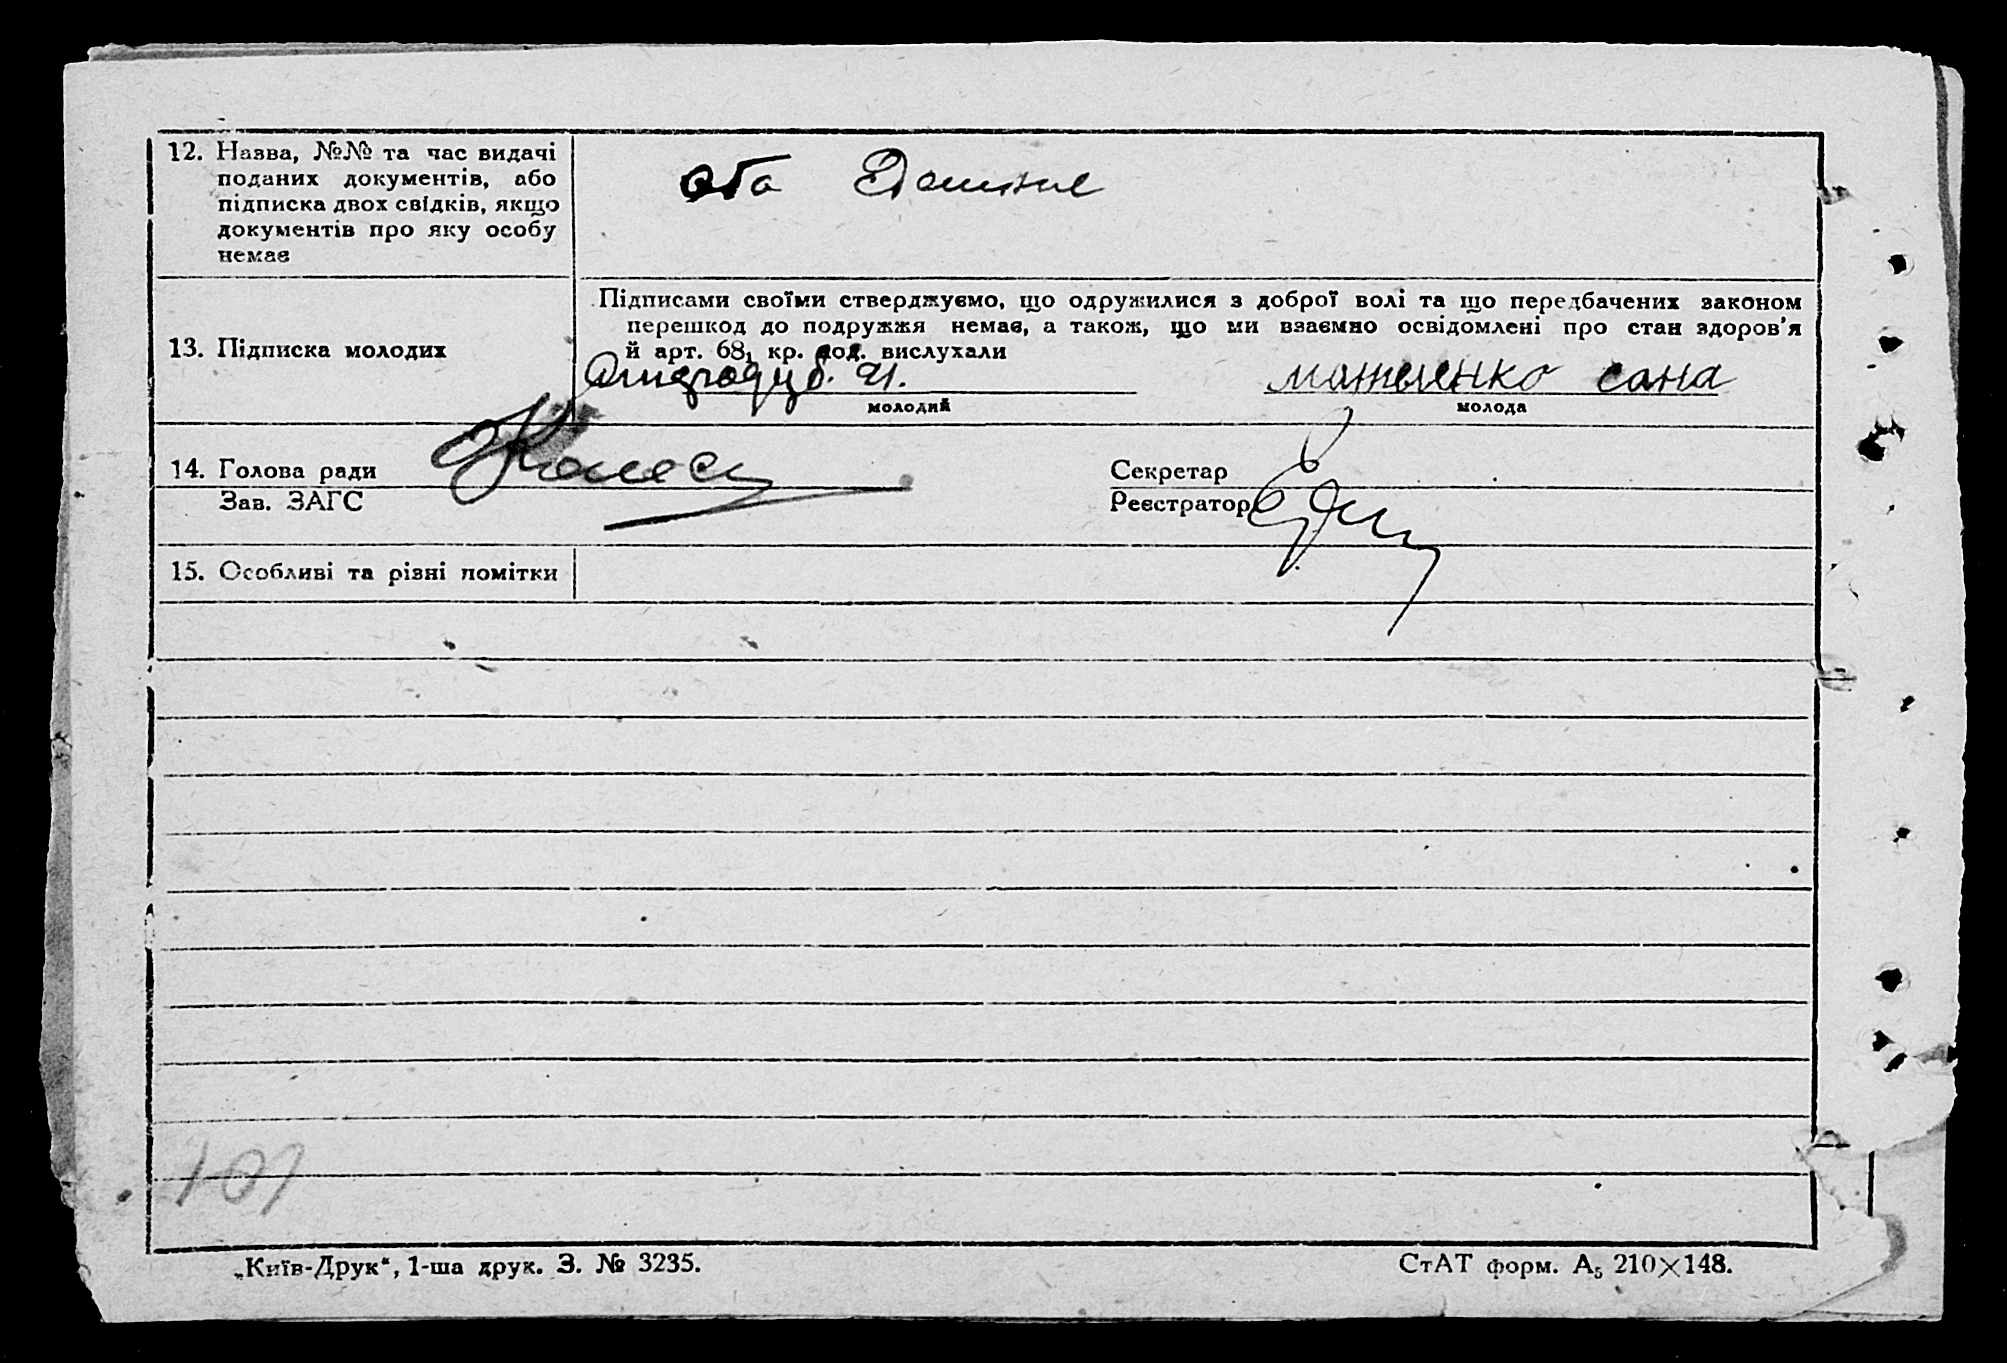 12. Назва, №№ та час видачі
поданих документів, або
підписка двох свідків, якщо
документів про яку особу
немає
оба
13. Підписка молодих
Підписами своїми стверджуємо, що одружилися з доброї волі та що передбачених законом
перешкод до подружжя немає, а також, що ми взаємно освідомлені про стан здоров'я
й арт. 68₁ кр. код. вислухали
сана
молодий
молода
14. Голова ради
Секретар
Зав. ЗАГС
Реєстратор
15. Особливі та різні помітки
101
„Київ-Друк“, 1-ша друк. З. № 3235.
СтАТ форм. А₅ 210×148.